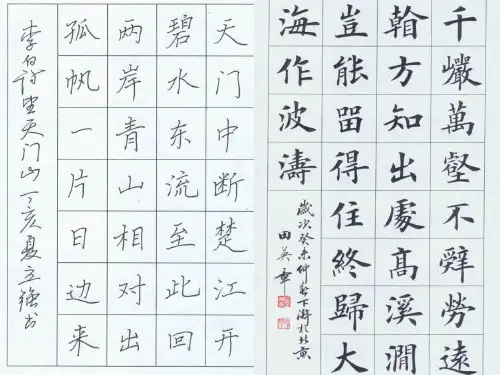 天门中断楚江开
碧水东流至此回
两岸青山相对出
孤帆一片日边来
李白诗望天门山丁亥夏立强书
千巖萬壑不辭勞遠
方知出處高溪澗
豈能留得住終歸大
海作波濤
歲次癸未仲春下澣於北京
田英章